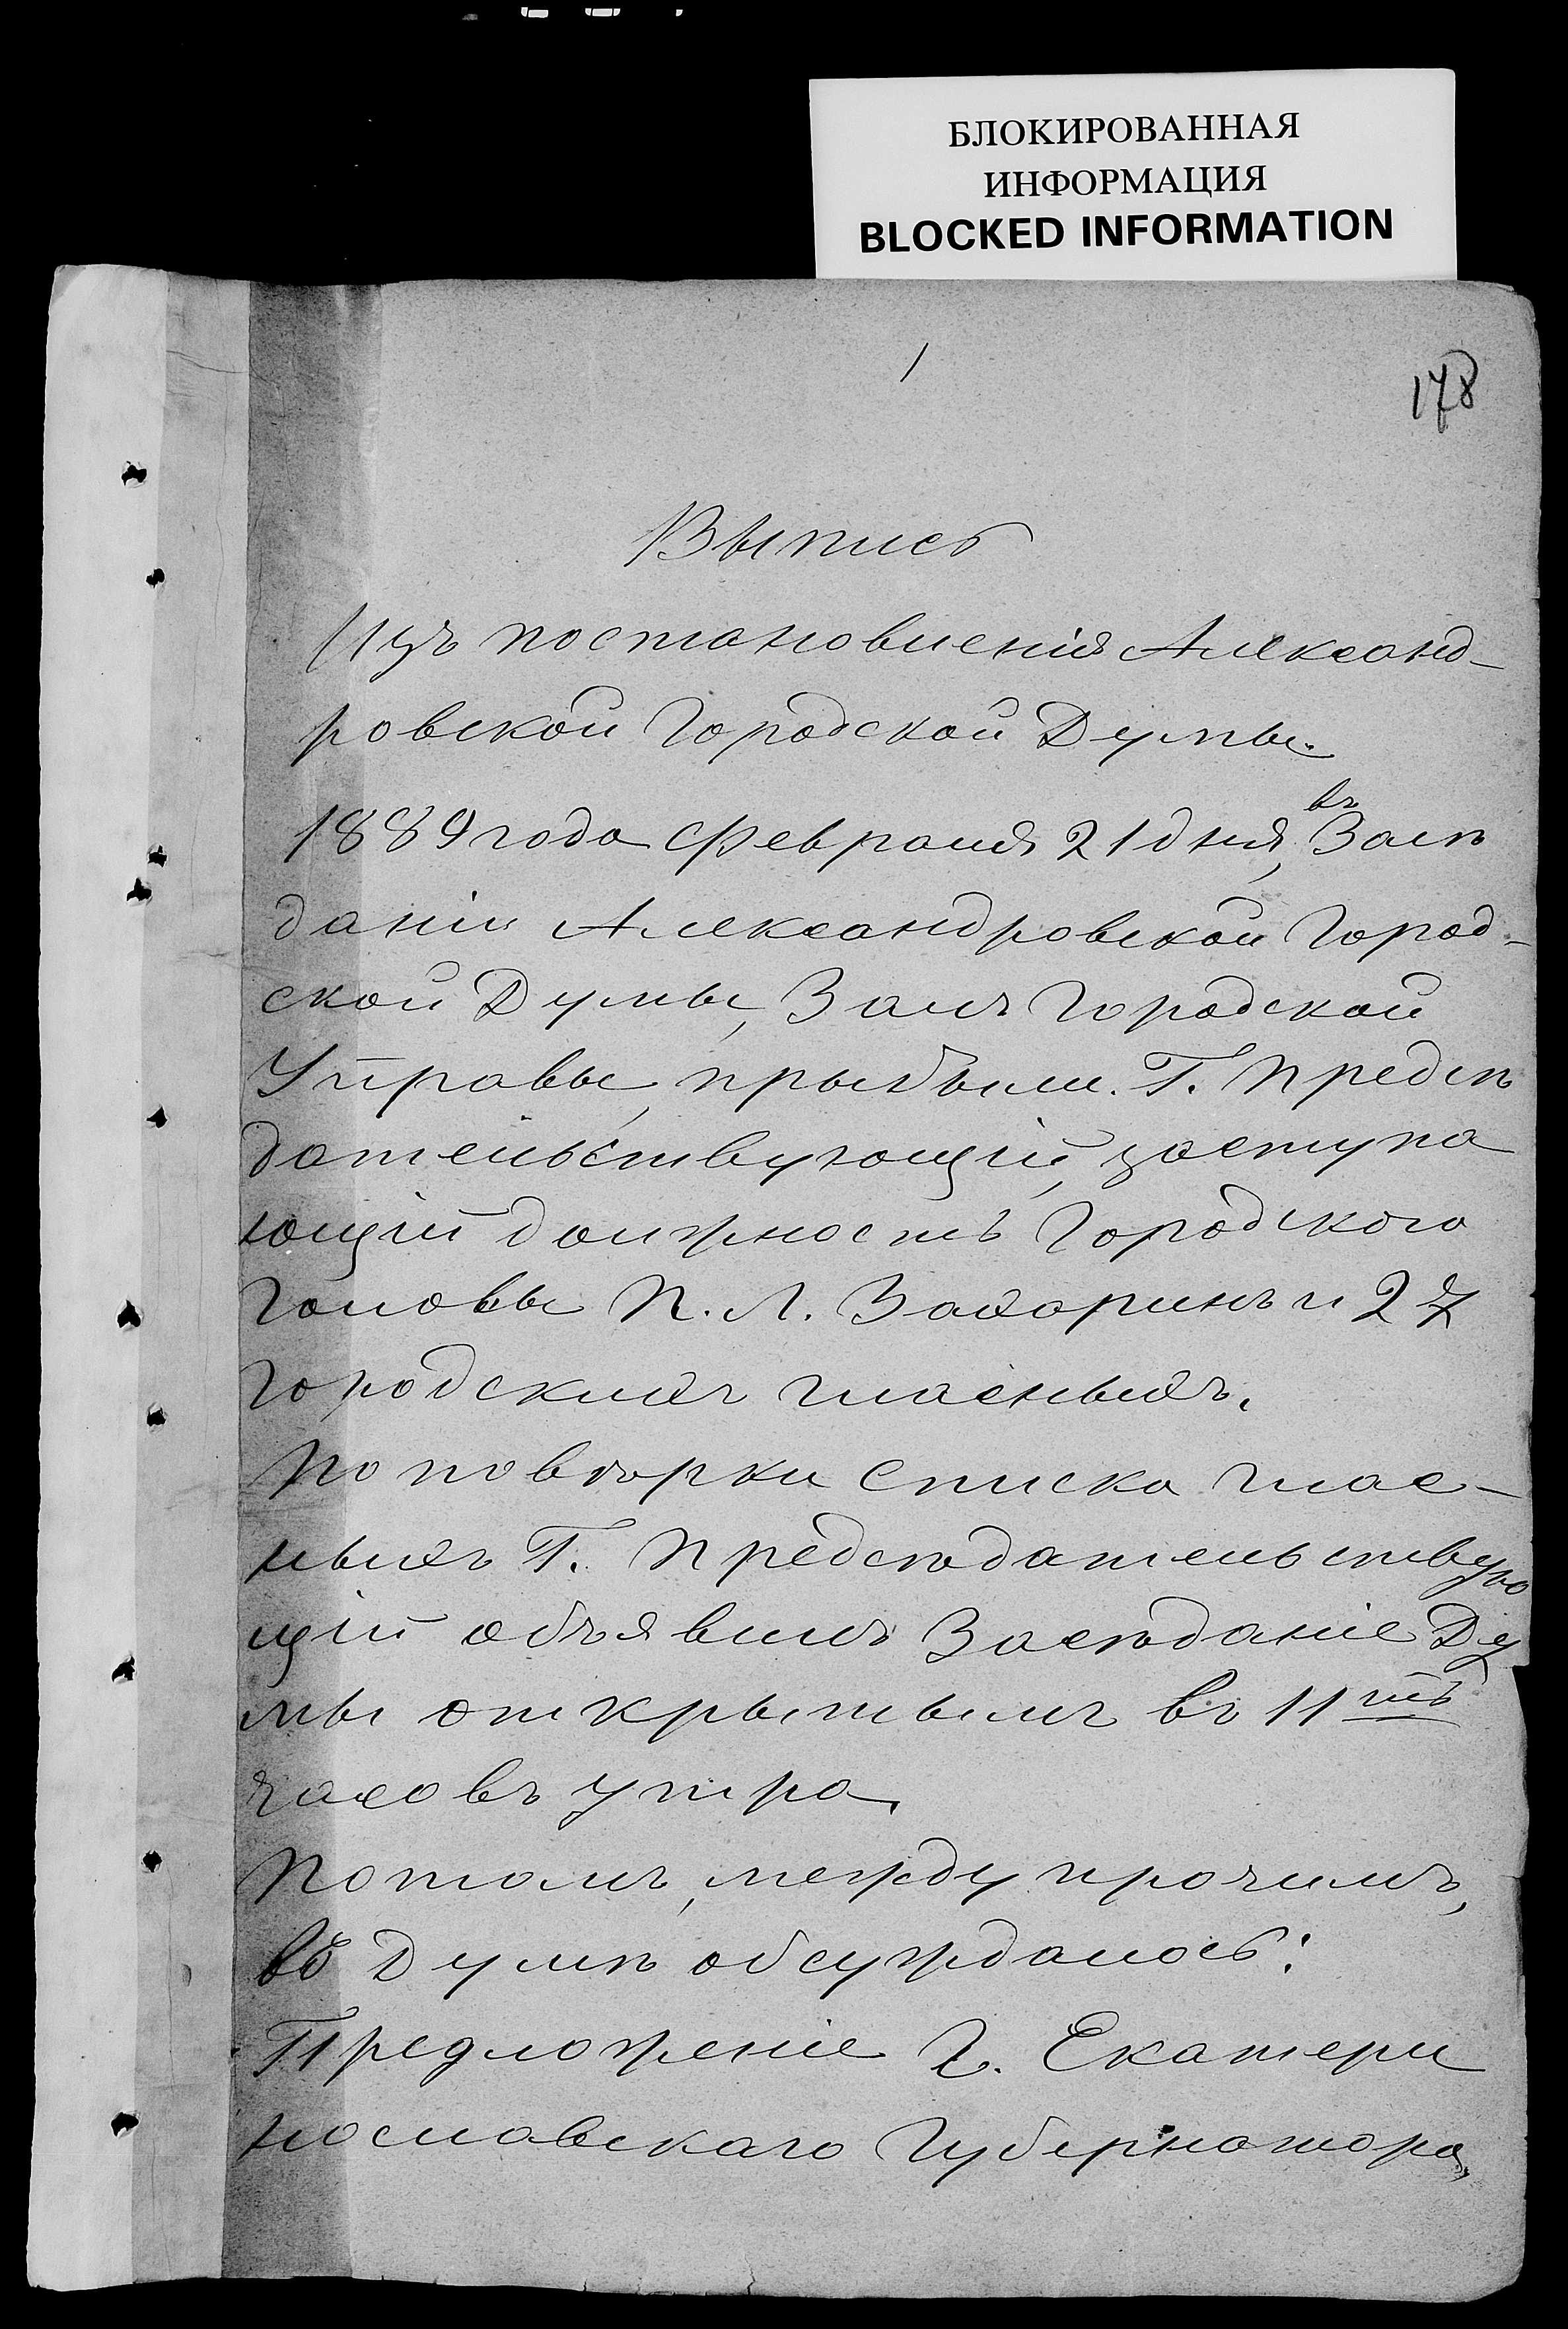 БЛОКИРОВАННАЯ
ИНФОРМАЦИЯ
BLOCKED INFORMATION
1
178
Выпись
Изъ постановленія Александ-
ровской Городской Думы.
1889 года Февраля 21 дня, въ Засѣ
даніи Александровской Город-
ской Думы, Залъ Городской
Управы, прыбыли. Г. Предсѣ
дательствующій, заступа
ющій должность Городского
Головы П. Л. Захаринъ и 27
городскихъ гласныхъ.
По повѣрки списка глас-
ныхъ Г. Предсѣдательствую
щій объявилъ Засѣданіе Ду
мы открытымъ въ 11ть
часовъ утра.
Потомъ, между прочимъ,
въ Думѣ обсуждалось:
Предложеніе Г. Екатери
нославскаго Губернатора,